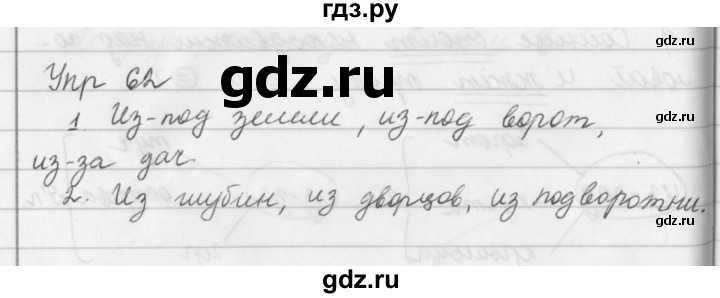 гдз.ру
Упр 62
gdz.ru
gdz.ru
1. Из-под земли, из-под ворот,
gdz.ru
из-за дач.
2. Из глубин, из дворцов, из подворотни.
gdz.ru
gdz.ru